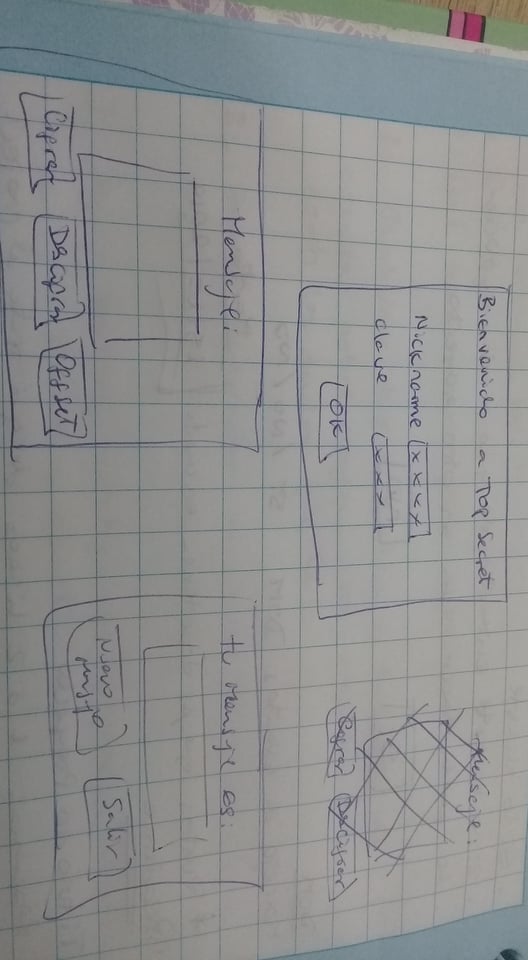 Bienvenido a TOP Secret
Nickname xxxx
clave xxx
OK
Mensaje:
Cifrar Descifrar
Mensaje:
Cifrar Descifrar OffSet
tu mensaje es:
Nuevo
Salir